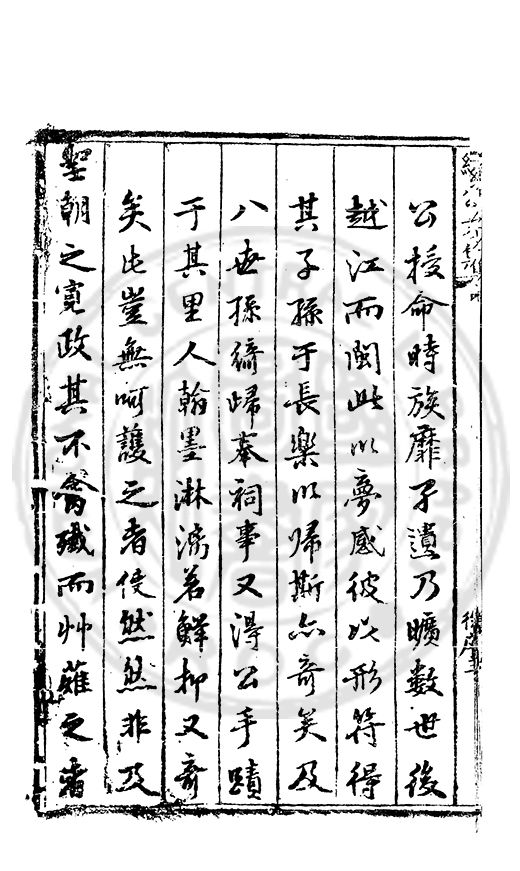 公授命時族靡孑遺乃曠數世後
越江而閩此以夢感彼以形符得
其子孫于長樂以歸斯亦奇矣及
八世孫綺歸奉祠事又得公手蹟
于其里人翰墨淋漓若鮮抑又奇
矣此豈無呵護之者使然然非及
聖朝之寬政其不禽殲而艸薙之者